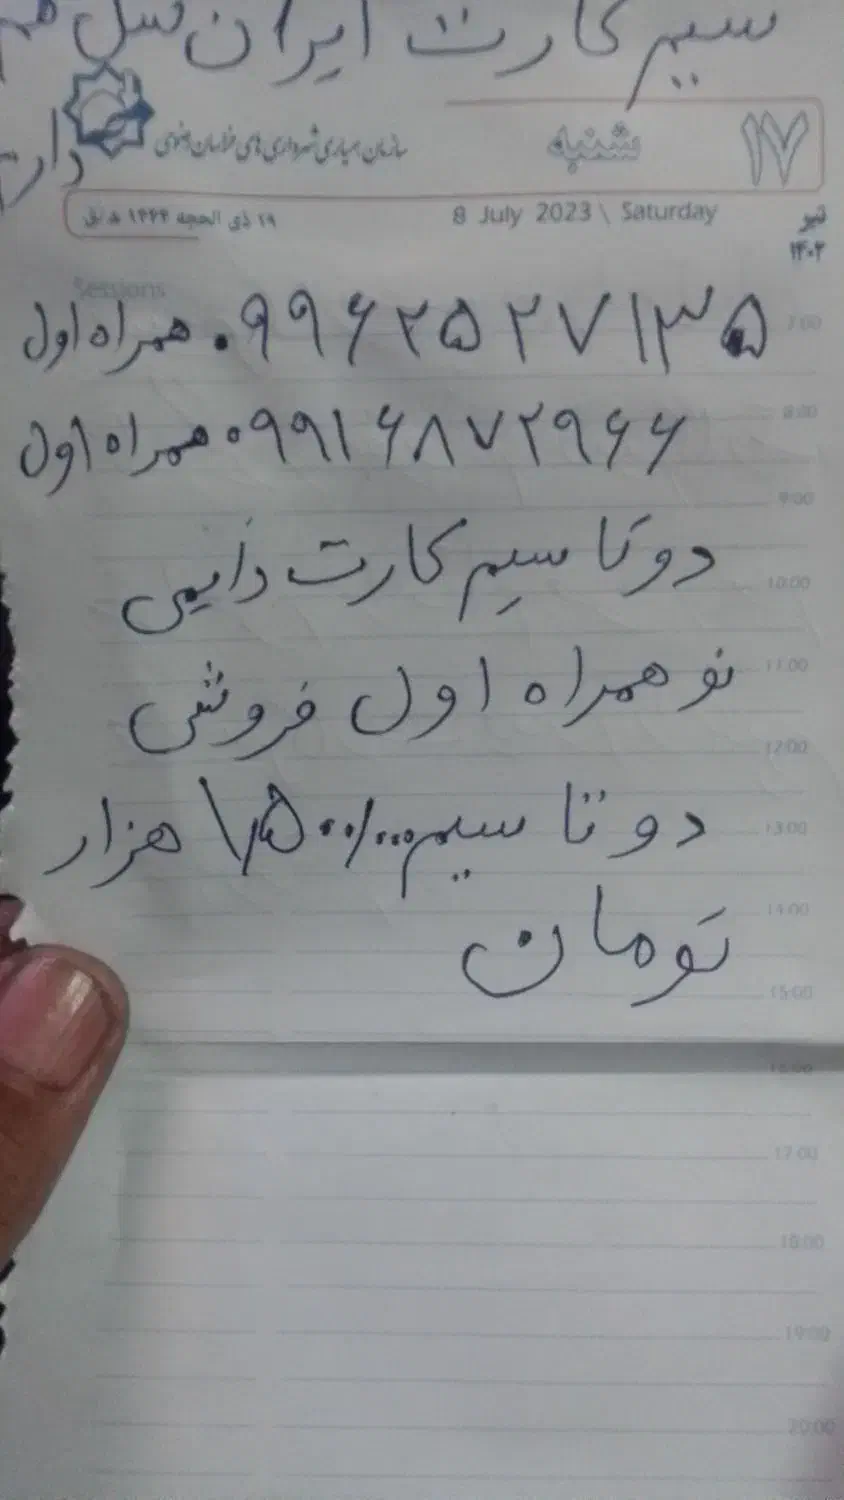 سیم کارت ایران سل هم
دارم
۱۷
شنبه
سازمان همیاری شهرداری های خراسان رضوی
تیر
۱۴۰۲
8 July 2023 \ Saturday
۱۹ ذی الحجه ۱۴۴۴ ه.ق
Sessions
7:00
۰۹۹۶۲۵۲۷۱۳۵ همراه اول
8:00
۰۹۹۱۶۸۷۲۹۶۶ همراه اول
9:00
دوتا سیم کارت دایمی
10:00
نو همراه اول فروش
11:00
12:00
دوتا سیم ۱/۵۰۰/۰۰۰ هزار
13:00
تومان
14:00
15:00
16:00
17:00
18:00
19:00
20:00